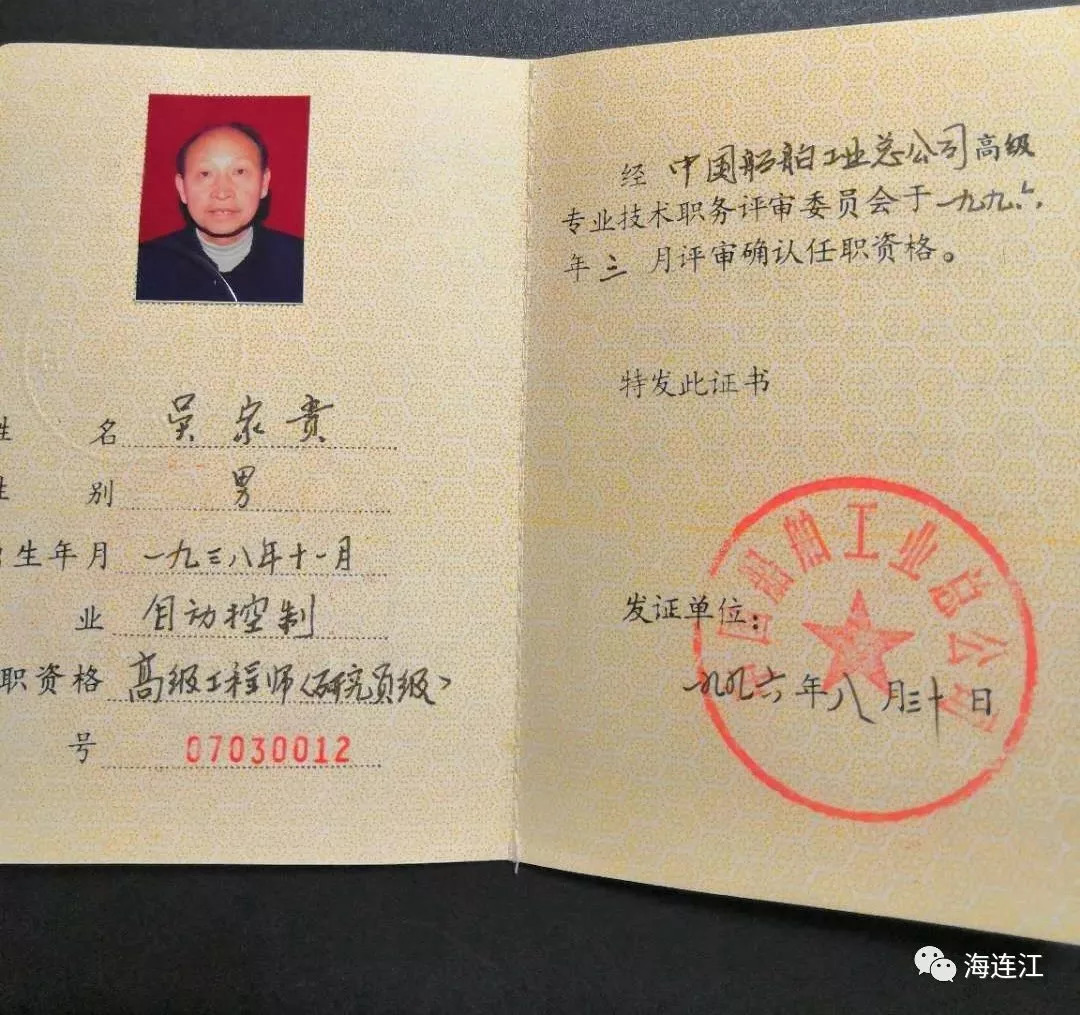 姓名 吴家贵
性别 男
出生年月 一九三八年十一月
业 自动控制
职资格 高级工程师(研究员级)
号 07030012
经 中国船舶工业总公司高级
专业技术职务评审委员会于一九九六
年三月评审确认任职资格。
特发此证书
发证单位:
中国船舶工业总公司
一九九六年八月三十日
海连江